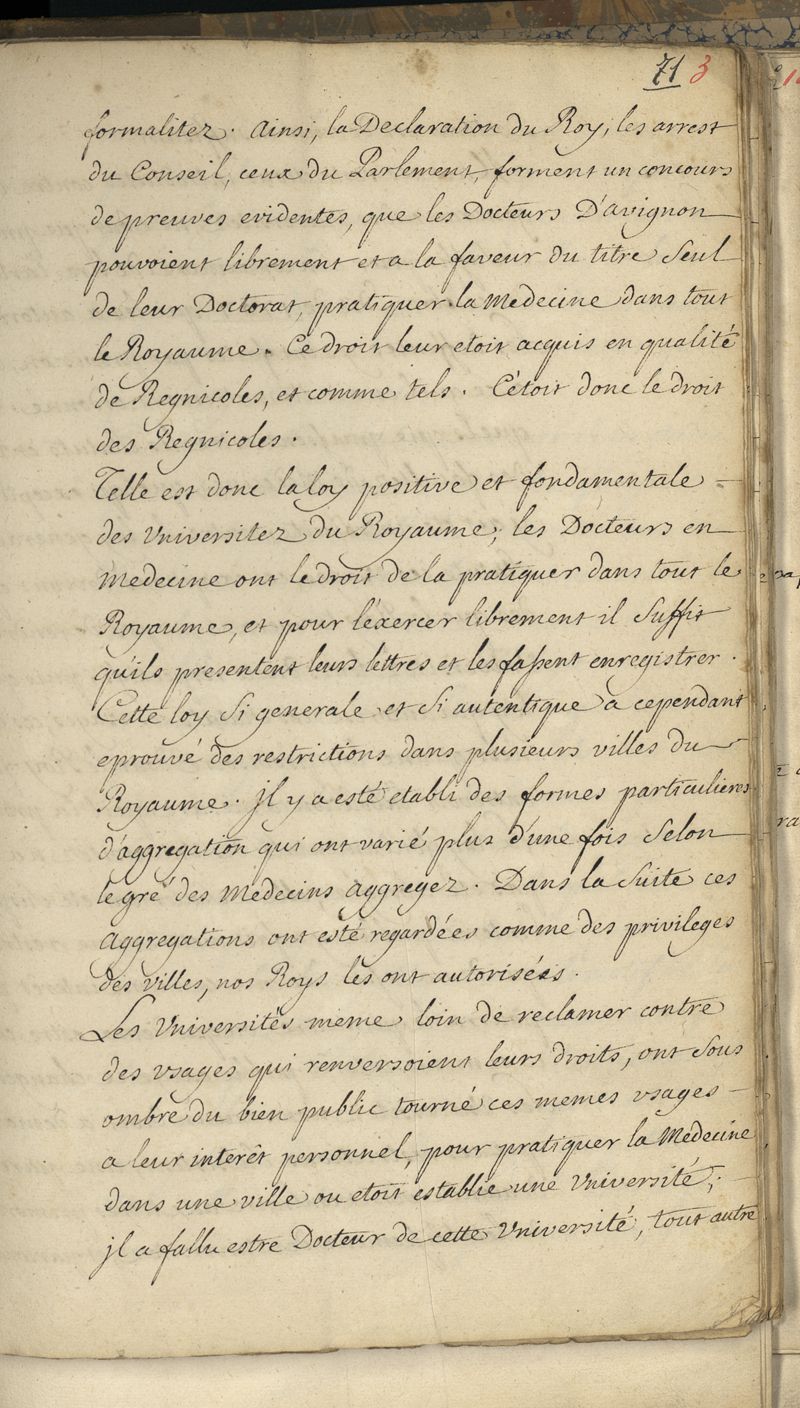 71 3
formalitez. Ainsi, la Declaration du Roy, les arrest
du Conseil, ceux du Parlement, forment un concours
de preuves evidentes, que les Docteurs D'avignon
pouvoient librement et a la faveur du titre Seul
de leur Doctorat, pratiquer la Medecine dans tout
le Royaume. Ce droit leur etoit acquis en qualité
de Regnicoles, et comme tels. C'étoit donc le droit
des Regnicoles.
Telle est donc la loy positive et fondamentale
des Universitez du Royaume; les Docteurs en
Medecine ont le droit de la pratiquer dans tout le
Royaume, et pour l'éxercer librement il Suffit
qu'ils presentent leurs lettres et les fassent enregistrer.
Cette loy Si generale et Si autentique a cependant
eprouvé des restrictions dans plusieurs villes du
Royaume. Jl y a esté etabli des formes particulieres
d'aggregation qui ont varié plus d'une fois Selon
le gré des Medecins aggregez. Dans la Suite ces
aggregations ont esté regardées comme des privileges
des villes, nos Roys les ont autorisées.
Les Universités meme loin de reclamer contre
des usages qui renversoient leurs droits, ont Sous
ombre du bien public tourné ces memes usages
a leur interêt personnel, pour pratiquer la Medecine
dans une ville ou etoit establie une Université,
jl a fallu estre Docteur de cette Université, tout autre